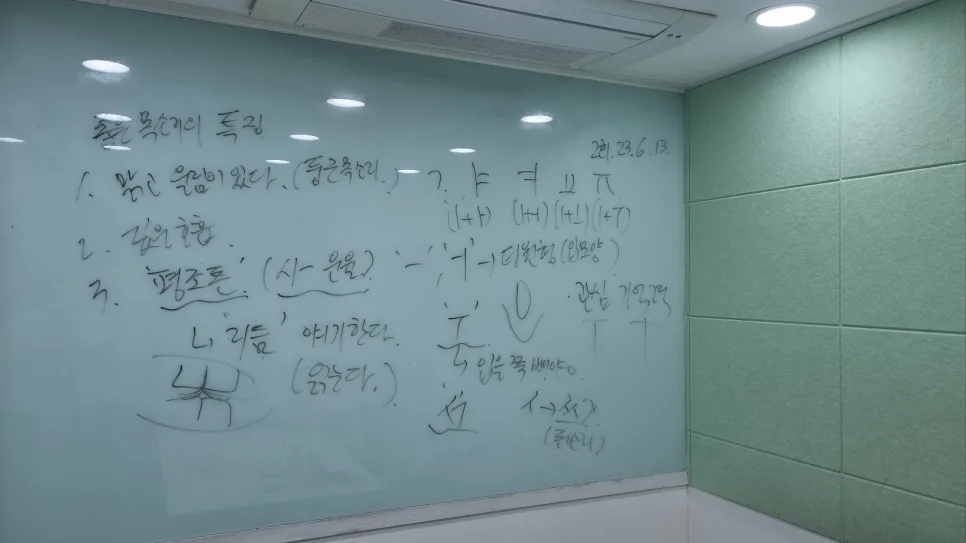 좋은 목소리의 특징
1. 맑고 울림이 있다. (둥근 목소리.)
2. 깊은 호흡.
3. '평조톤' (시- 운율?)
ㄴ '리듬' 얘기한다.
(읽는다.)
23. 6. 13.
ㄱ. ㅑ ㅕ ㅛ ㅠ
(ㅣ+ㅏ) (ㅣ+ㅓ) (ㅣ+ㅗ) (ㅣ+ㅜ)
'ㅡ', 'ㅓ' → 타원형 (입모양)
'ㅜ'
· 관심 기억력
입을 쭉 빼야.
ㅅ →